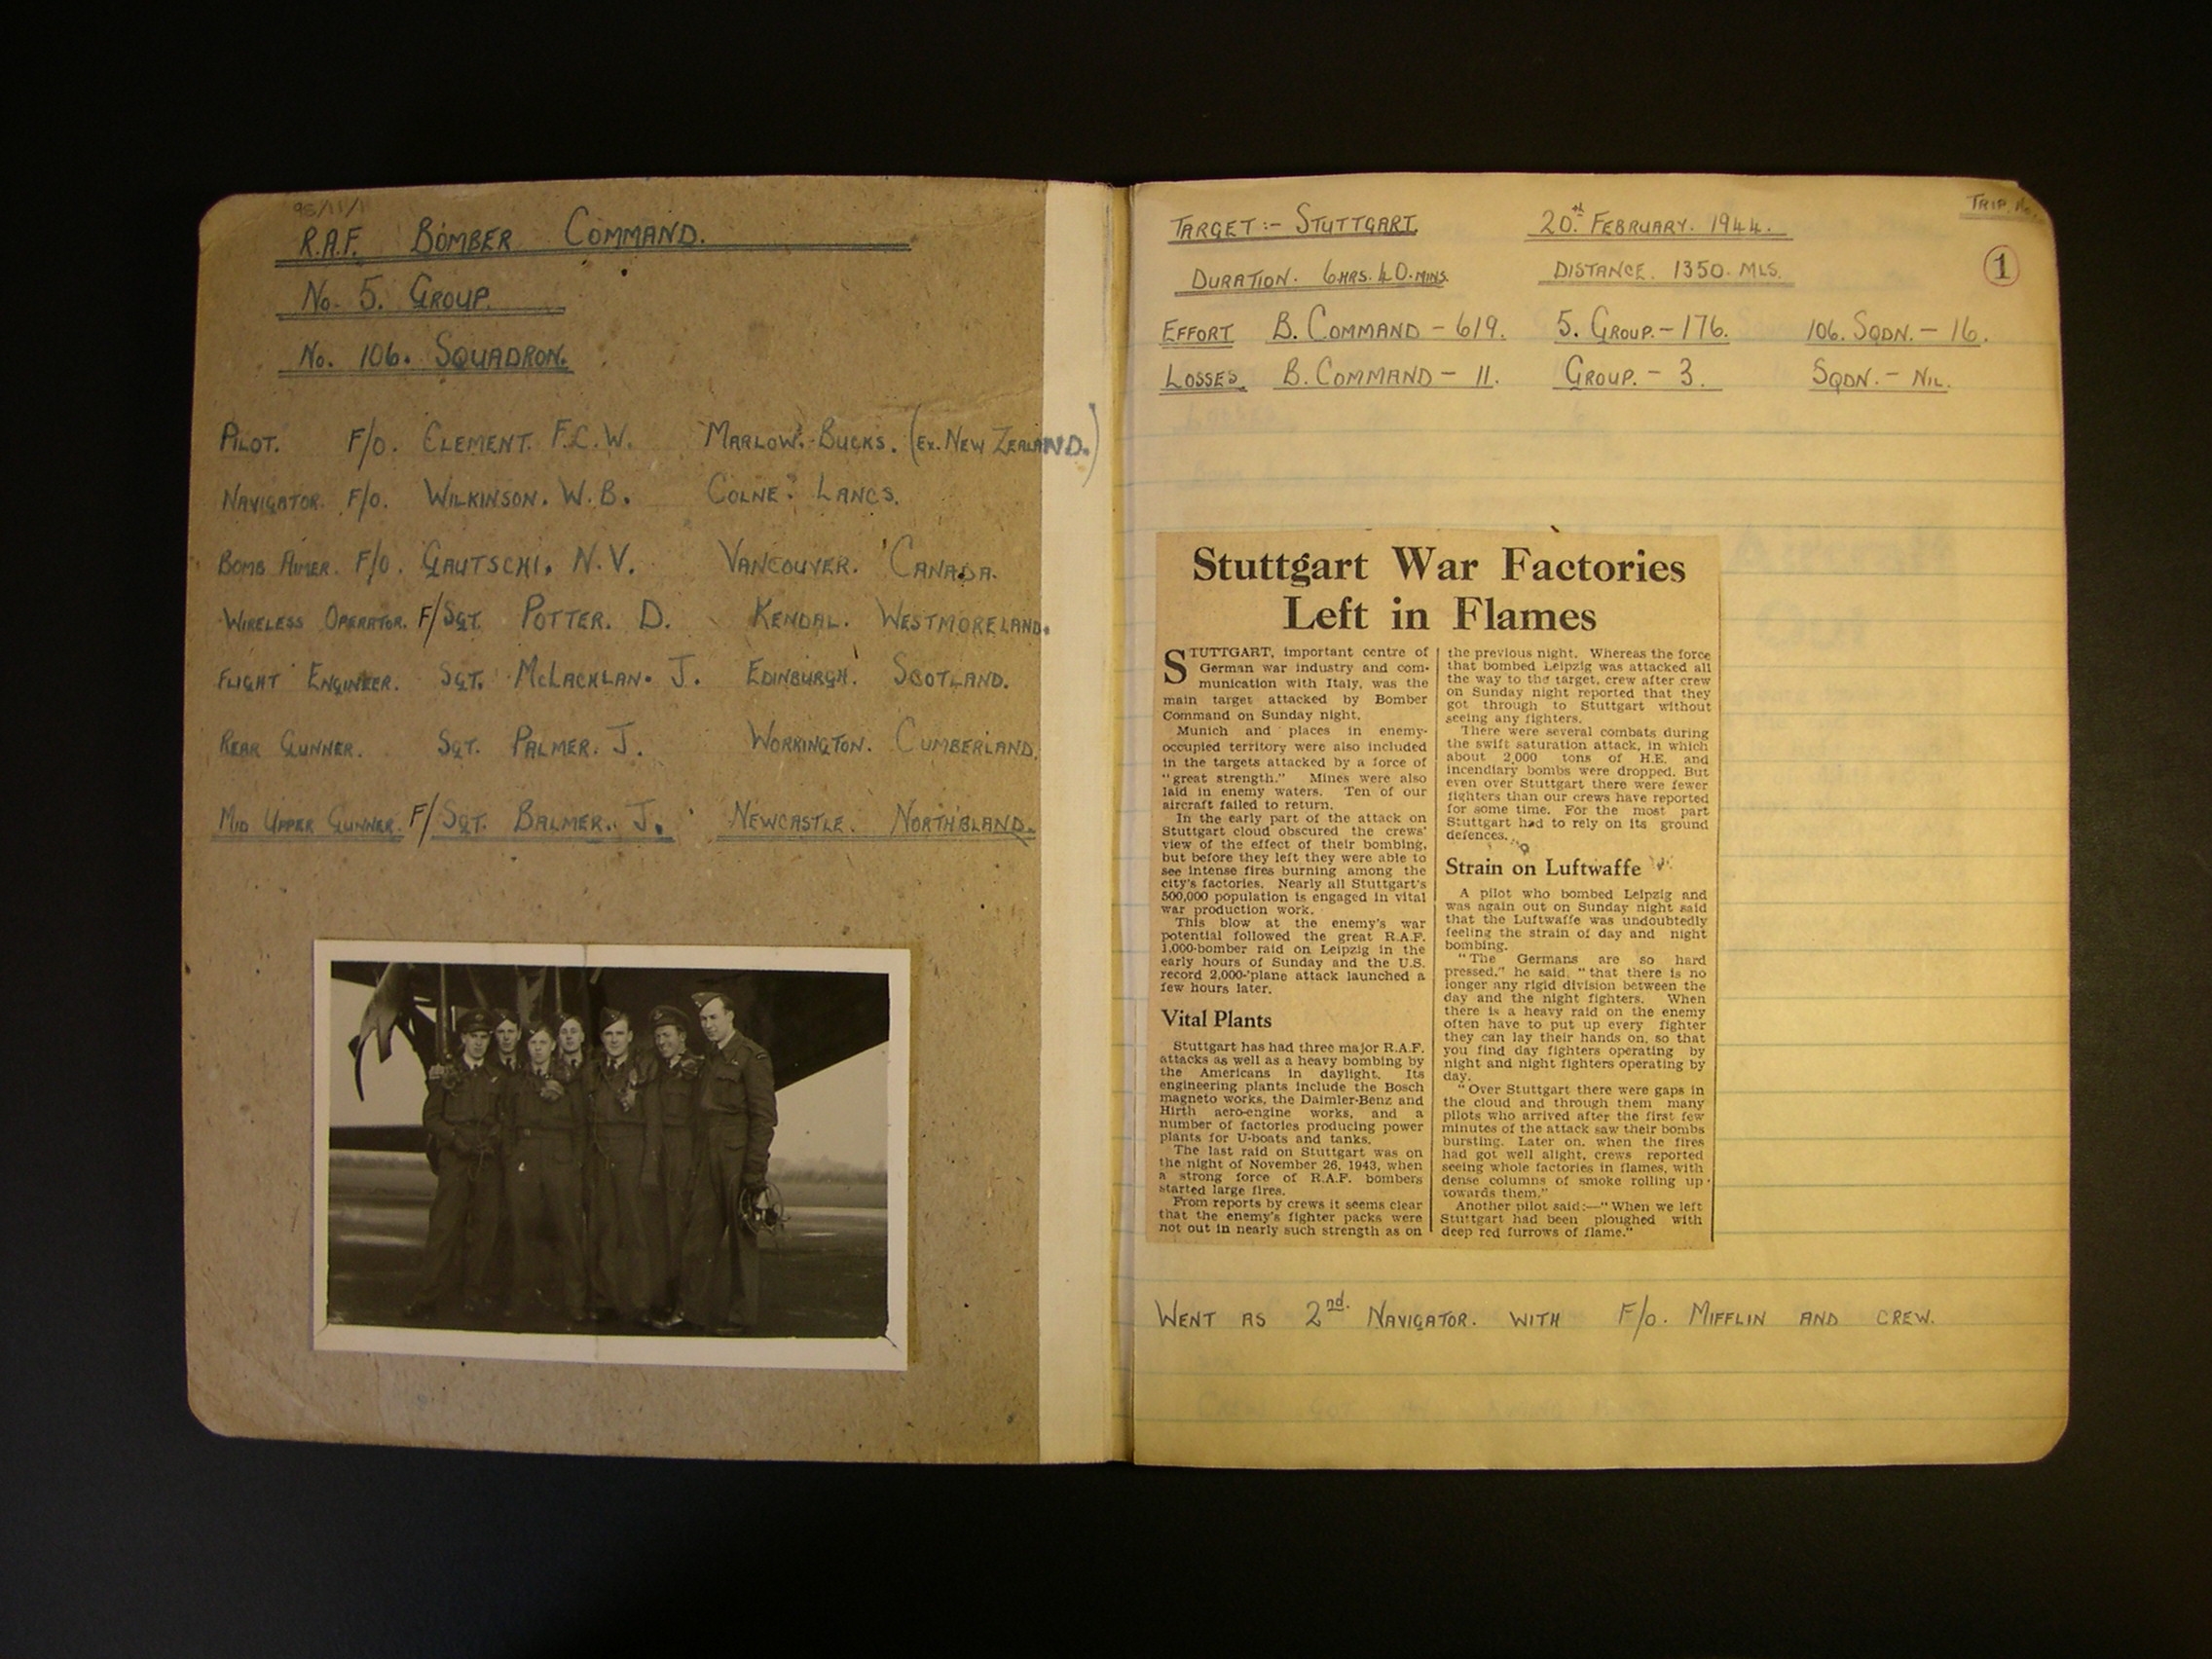 95/11/1
R.A.F. BOMBER COMMAND.
No. 5. GROUP.
No. 106. SQUADRON.
PILOT. F/O. CLEMENT. F.C.W. MARLOW. BUCKS. (EX. NEW ZEALAND.)
NAVIGATOR. F/O. WILKINSON. W.B. COLNE. LANCS.
BOMB AIMER. F/O. GAUTSCHI. N.V. VANCOUVER. CANADA.
WIRELESS OPERATOR. F/SGT. POTTER. D. KENDAL. WESTMORELAND.
FLIGHT ENGINEER. SGT. McLACHLAN. J. EDINBURGH. SCOTLAND.
REAR GUNNER. SGT. PALMER. J. WORKINGTON. CUMBERLAND.
MID UPPER GUNNER. F/SGT. BALMER. J. NEWCASTLE. NORTHBLAND.
TRIP. No.
TARGET:- STUTTGART 20TH FEBRUARY. 1944.
1
DURATION. 6HRS. 40.MINS. DISTANCE. 1350. MLS.
EFFORT B. COMMAND - 619. 5. GROUP. - 176. 106. SQDN. - 16.
LOSSES. B. COMMAND - 11. GROUP. - 3. SQDN. - NIL.
Stuttgart War Factories
Left in Flames
STUTTGART, important centre of
German war industry and com-
munication with Italy, was the
main target attacked by Bomber
Command on Sunday night.
Munich and places in enemy-
occupied territory were also included
in the targets attacked by a force of
"great strength." Mines were also
laid in enemy waters. Ten of our
aircraft failed to return.
In the early part of the attack on
Stuttgart cloud obscured the crews'
view of the effect of their bombing,
but before they left they were able to
see intense fires burning among the
city's factories. Nearly all Stuttgart's
500,000 population is engaged in vital
war production work.
This blow at the enemy's war
potential followed the great R.A.F.
1,000-bomber raid on Leipzig in the
early hours of Sunday and the U.S.
record 2,000-'plane attack launched a
few hours later.
Vital Plants
Stuttgart has had three major R.A.F.
attacks as well as a heavy bombing by
the Americans in daylight. Its
engineering plants include the Bosch
magneto works, the Daimler-Benz and
Hirth aero-engine works, and a
number of factories producing power
plants for U-boats and tanks.
The last raid on Stuttgart was on
the night of November 26, 1943, when
a strong force of R.A.F. bombers
started large fires.
From reports by crews it seems clear
that the enemy's fighter packs were
not out in nearly such strength as on
the previous night. Whereas the force
that bombed Leipzig was attacked all
the way to the target, crew after crew
on Sunday night reported that they
got through to Stuttgart without
seeing any fighters.
There were several combats during
the swift saturation attack, in which
about 2,000 tons of H.E. and
incendiary bombs were dropped. But
even over Stuttgart there were fewer
fighters than our crews have reported
for some time. For the most part
Stuttgart had to rely on its ground
defences.
Strain on Luftwaffe
A pilot who bombed Leipzig and
was again out on Sunday night said
that the Luftwaffe was undoubtedly
feeling the strain of day and night
bombing.
"The Germans are so hard
pressed," he said, "that there is no
longer any rigid division between the
day and the night fighters. When
there is a heavy raid on the enemy
often have to put up every fighter
they can lay their hands on, so that
you find day fighters operating by
night and night fighters operating by
day.
"Over Stuttgart there were gaps in
the cloud and through them many
pilots who arrived after the first few
minutes of the attack saw their bombs
bursting. Later on, when the fires
had got well alight, crews reported
seeing whole factories in flames, with
dense columns of smoke rolling up
towards them."
Another pilot said:—"When we left
Stuttgart had been ploughed with
deep red furrows of flame."
WENT AS 2nd. NAVIGATOR. WITH F/O. MIFFLIN AND CREW.